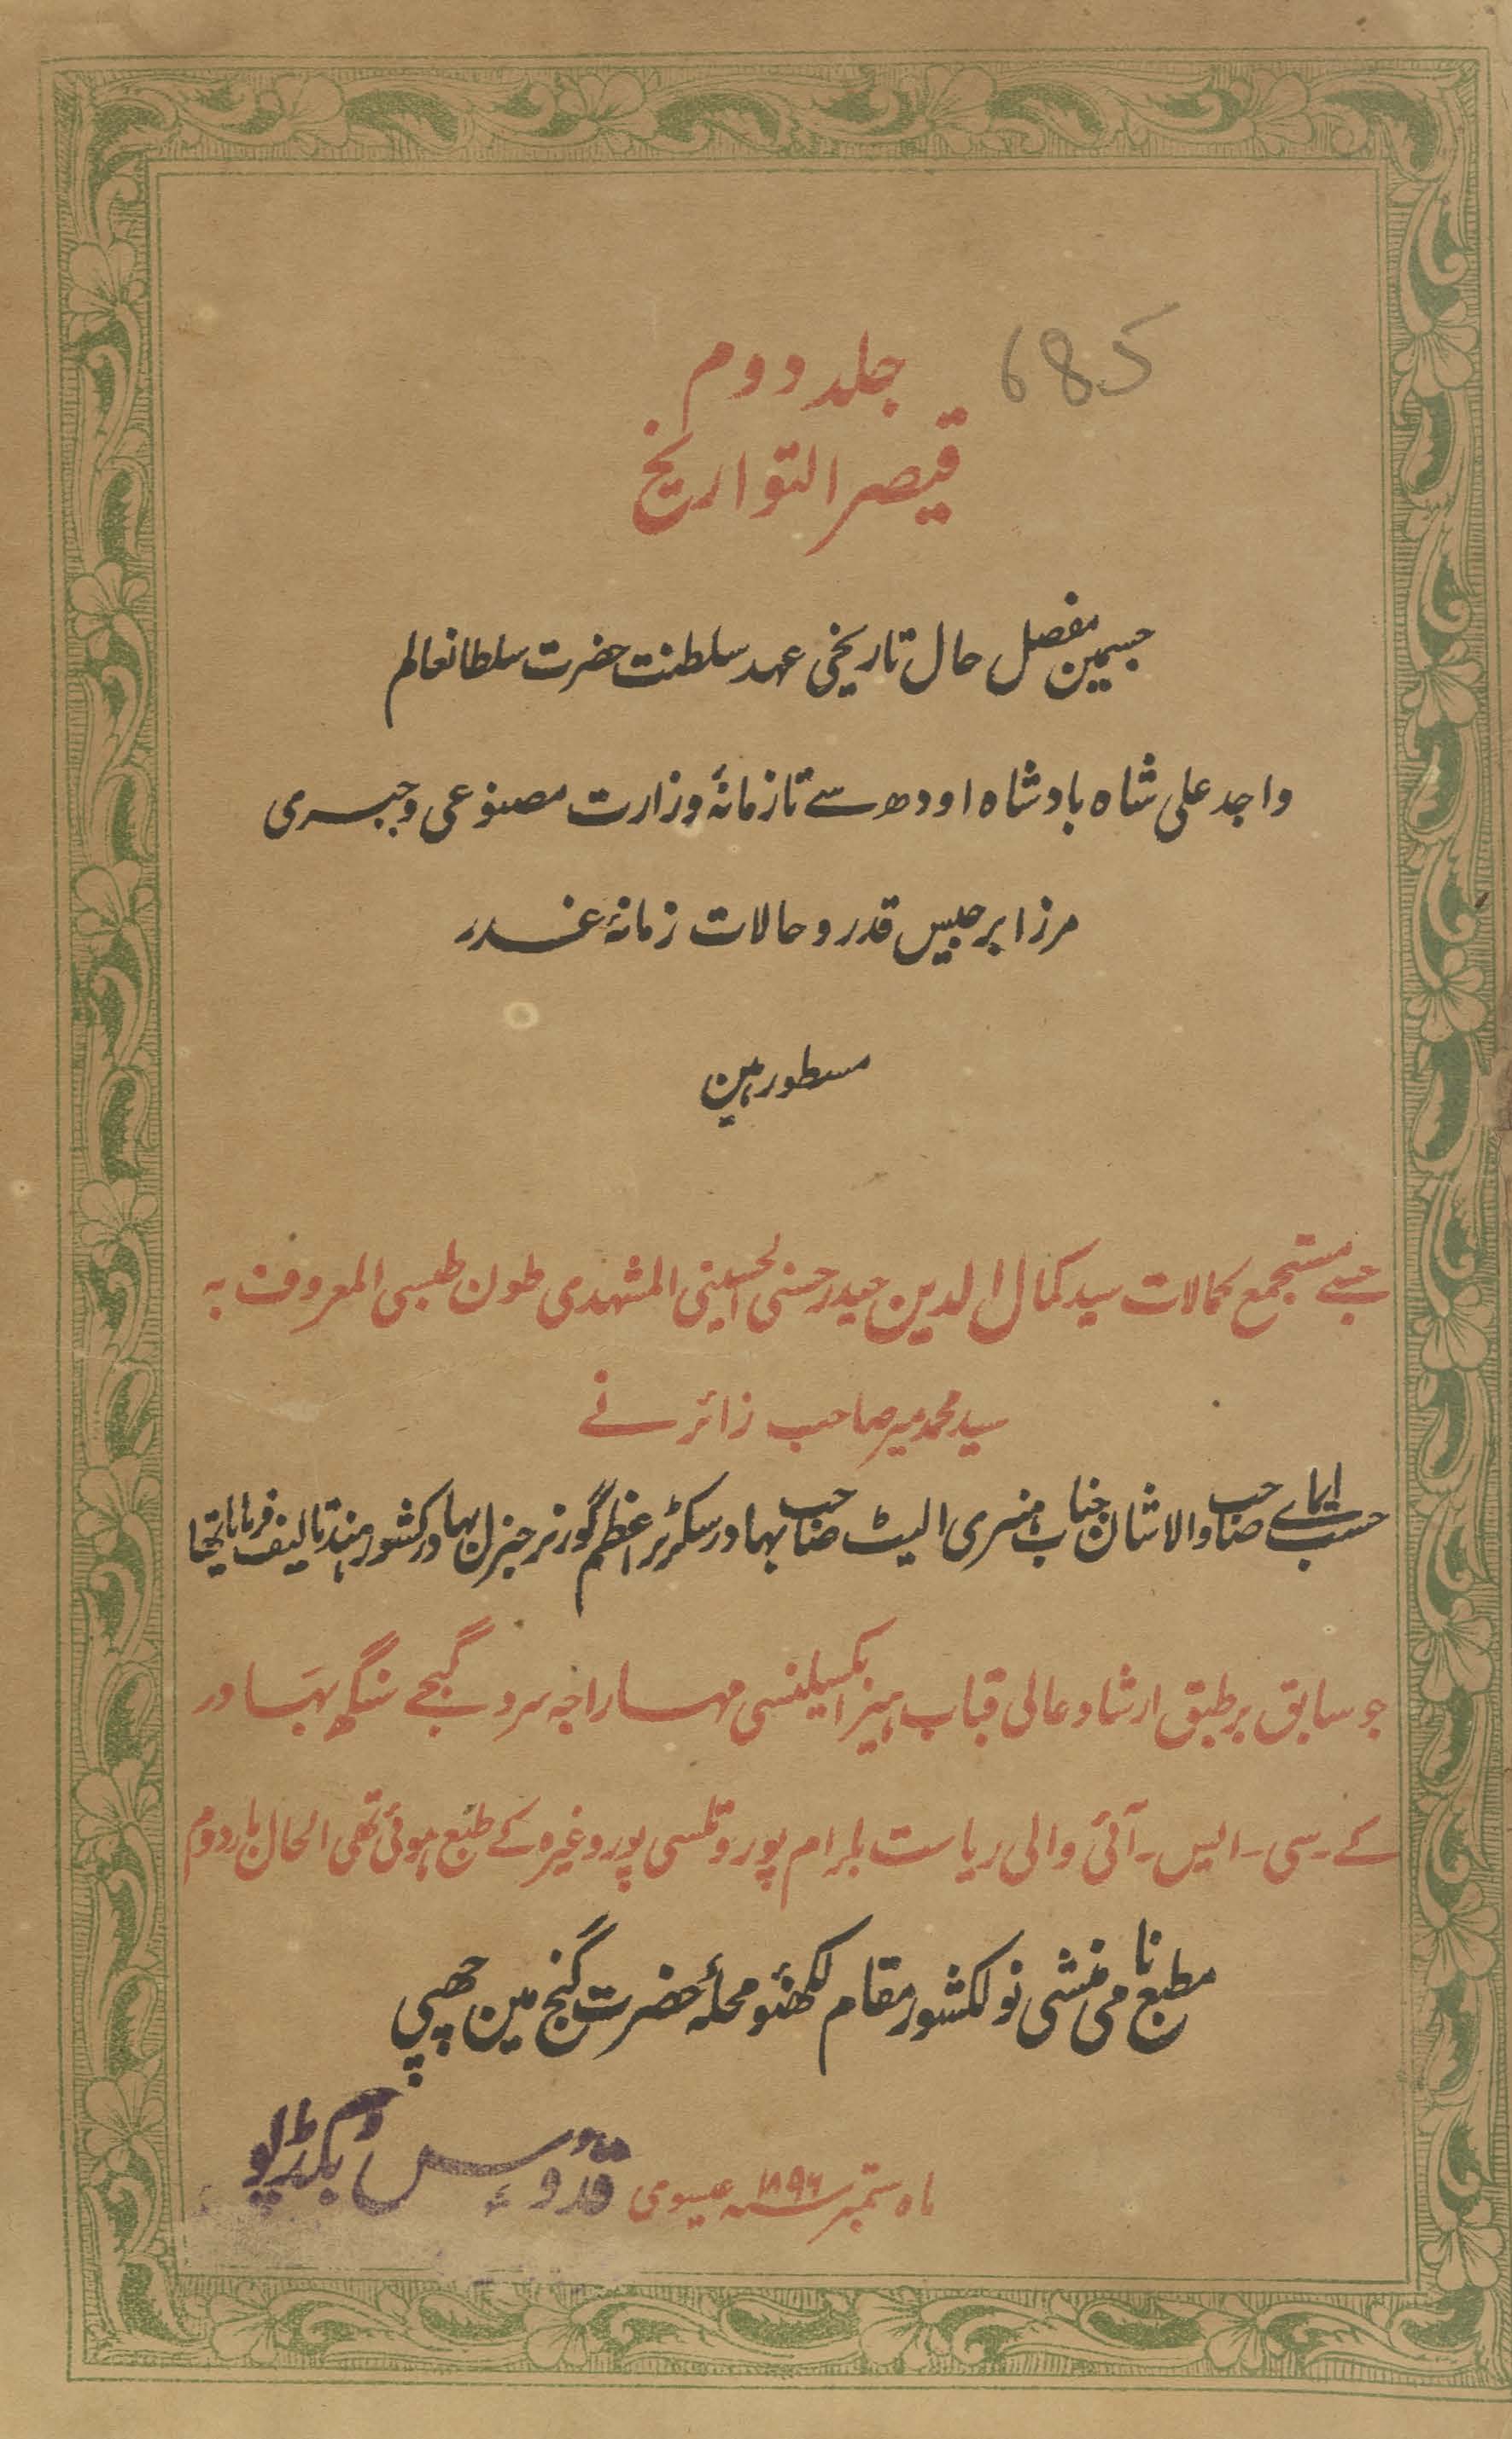 685
جلد دوم
قیصر التواریخ
جسمین مفصل حال تاریخی عہد سلطنت حضرت سلطانعالم
واجد علی شاہ بادشاہ اودھ سے تا زمانۂ وزارت مصنوعی و جبری
مرزا برجیس قدر و حالات زمانۂ غدر
مسطور ہین
جسے مستجمع کمالات سید کمال الدین حیدر حسنی الحسینی المشہدی طبسی المعروف بہ
سید محمد میر صاحب زائر نے
حسب ایماے صاحب والاشان جناب ہنری الیٹ صاحب بہادر سکرٹر اعظم گورنر جنرل بہادر کشور ہند تالیف فرمایا تھا
جو سابق بر طبق ارشاد عالی قباب ہیز اکسیلنسی مہاراجہ سر دگبجے سنگھ بہادر
کے۔سی۔ایس۔آئی والی ریاست بلرام پور و تلسی پور وغیرہ کے طبع ہوئی تھی الحال بار دوم
مطبع نامی منشی نولکشور مقام لکھنؤ محلۂ حضرت گنج مین چھپی
ماہ ستمبر سنہ ۱۸۹۶ عیسوی
قدوس بکڈپو